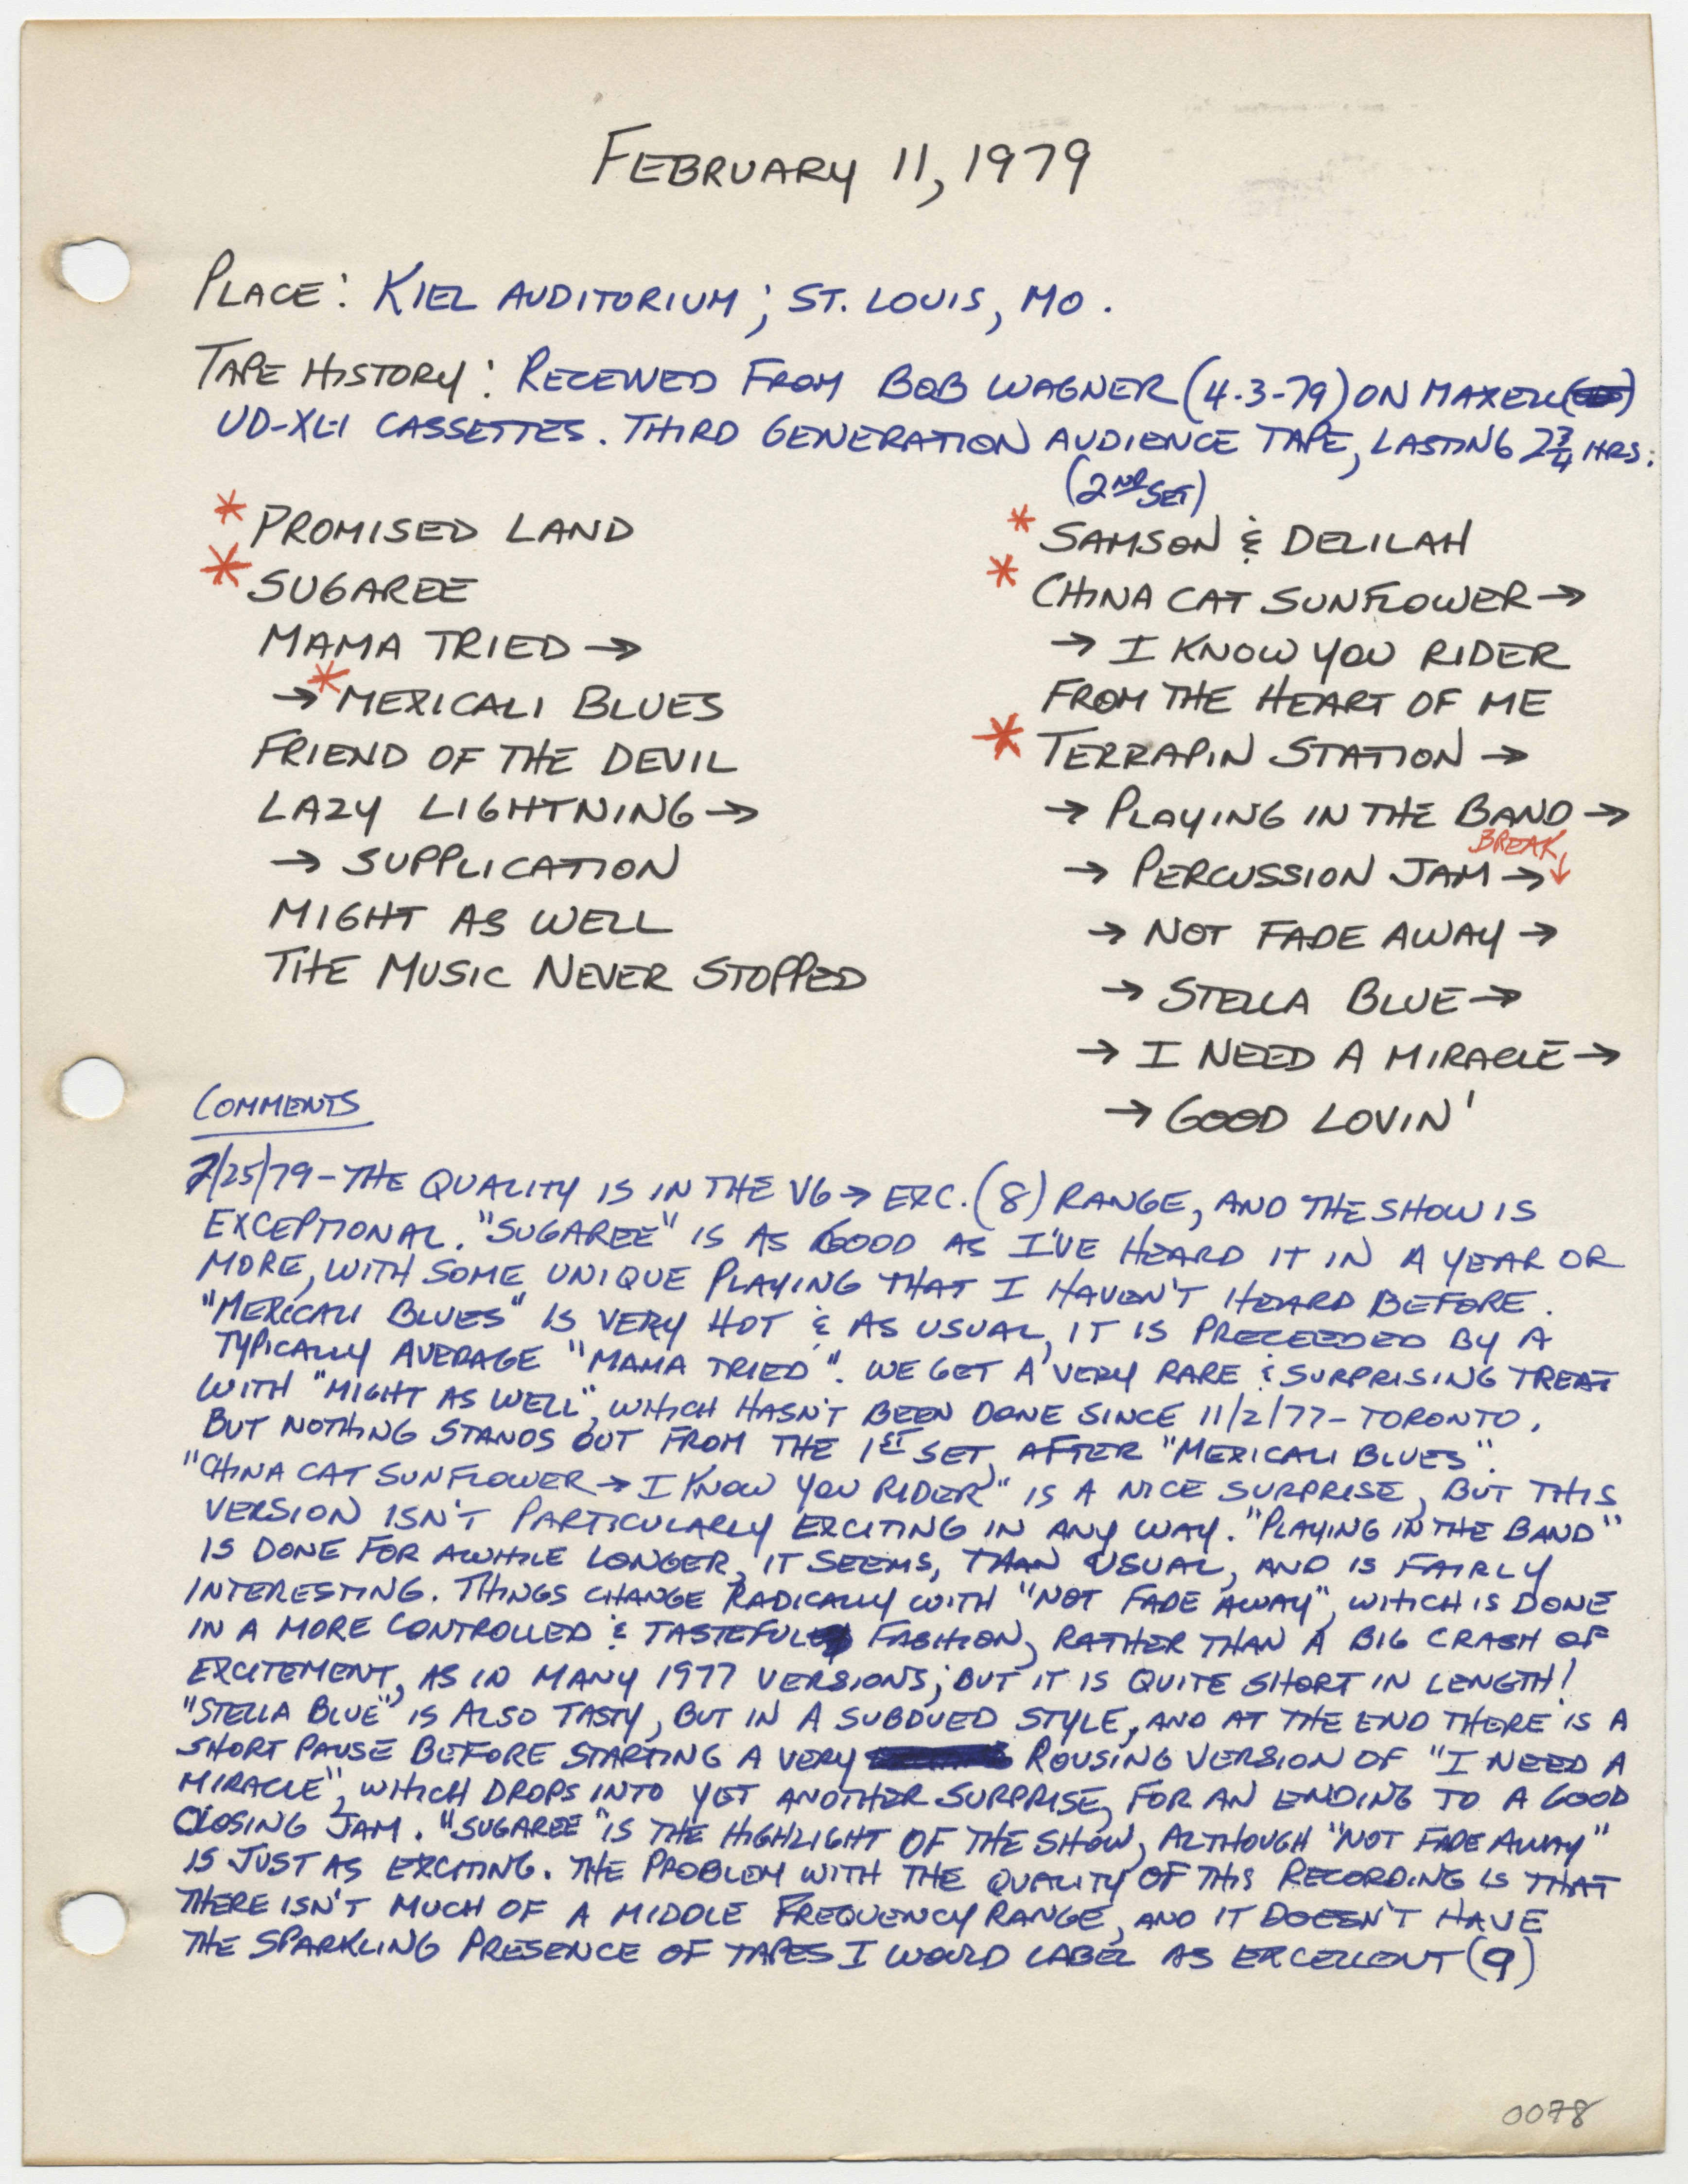 FEBRUARY 11, 1979
PLACE: KIEL AUDITORIUM; ST. LOUIS, MO.
TAPE HISTORY: RECEIVED FROM BOB WAGNER (4-3-79) ON MAXELL
UD-XLI CASSETTES. THIRD GENERATION AUDIENCE TAPE, LASTING 2 3/4 HRS:
* PROMISED LAND
* SUGAREE
MAMA TRIED →
→ * MEXICALI BLUES
FRIEND OF THE DEVIL
LAZY LIGHTNING →
→ SUPPLICATION
MIGHT AS WELL
THE MUSIC NEVER STOPPED
(2ND SET)
* SAMSON & DELILAH
* CHINA CAT SUNFLOWER →
→ I KNOW YOU RIDER
FROM THE HEART OF ME
* TERRAPIN STATION →
→ PLAYING IN THE BAND →
BREAK ↓
→ PERCUSSION JAM →
→ NOT FADE AWAY →
→ STELLA BLUE →
→ I NEED A MIRACLE →
→ GOOD LOVIN'
COMMENTS
7/25/79 - THE QUALITY IS IN THE VG → EXC. (8) RANGE, AND THE SHOW IS
EXCEPTIONAL. "SUGAREE" IS AS GOOD AS I'VE HEARD IT IN A YEAR OR
MORE, WITH SOME UNIQUE PLAYING THAT I HAVEN'T HEARD BEFORE.
"MEXICALI BLUES" IS VERY HOT & AS USUAL, IT IS PRECEEDED BY A
TYPICALLY AVERAGE "MAMA TRIED". WE GET A VERY RARE & SURPRISING TREAT
WITH "MIGHT AS WELL", WHICH HASN'T BEEN DONE SINCE 11/2/77 - TORONTO.
BUT NOTHING STANDS OUT FROM THE 1ST SET, AFTER "MEXICALI BLUES".
"CHINA CAT SUNFLOWER → I KNOW YOU RIDER" IS A NICE SURPRISE, BUT THIS
VERSION ISN'T PARTICULARLY EXCITING IN ANY WAY. "PLAYING IN THE BAND"
IS DONE FOR AWHILE LONGER, IT SEEMS, THAN USUAL, AND IS FAIRLY
INTERESTING. THINGS CHANGE RADICALLY WITH "NOT FADE AWAY", WHICH IS DONE
IN A MORE CONTROLLED & TASTEFUL FASHION, RATHER THAN A BIG CRASH OF
EXCITEMENT, AS IN MANY 1977 VERSIONS; BUT IT IS QUITE SHORT IN LENGTH!
"STELLA BLUE" IS ALSO TASTY, BUT IN A SUBDUED STYLE, AND AT THE END THERE IS A
SHORT PAUSE BEFORE STARTING A VERY ROUSING VERSION OF "I NEED A
MIRACLE", WHICH DROPS INTO YET ANOTHER SURPRISE, FOR AN ENDING TO A GOOD
CLOSING JAM. "SUGAREE" IS THE HIGHLIGHT OF THE SHOW, ALTHOUGH "NOT FADE AWAY"
IS JUST AS EXCITING. THE PROBLEM WITH THE QUALITY OF THIS RECORDING IS THAT
THERE ISN'T MUCH OF A MIDDLE FREQUENCY RANGE, AND IT DOESN'T HAVE
THE SPARKLING PRESENCE OF TAPES I WOULD LABEL AS EXCELLENT (9)
0078